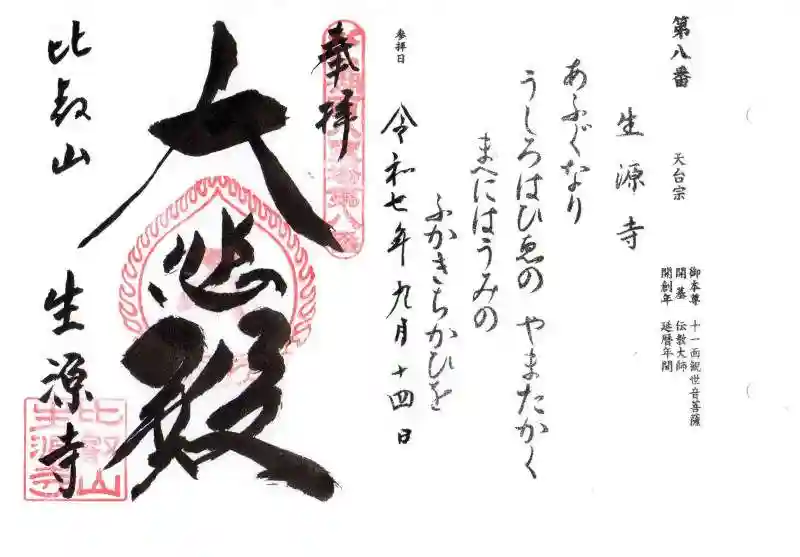 第八番
天台宗
御本尊 十一面観世音菩薩
開基 伝教大師
開創年 延暦年間
生源寺
あふぐなり
うしろはひゑの やまたかく
まへにはうみの
ふかきちかひを
参拝日
令和七年九月十四日
奉拝
大悲殿
比叡山 生源寺
比叡山
生源寺